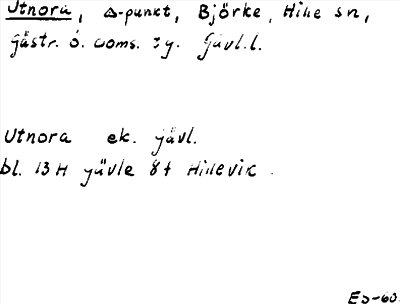 Utnora, △-punkt, Björke, Hille sn,
Gästr. ö. doms. tg. Gävl.l.
Utnora ek. gävl.
bl. 13 H gävle 8 f Hillevik.
ES-60